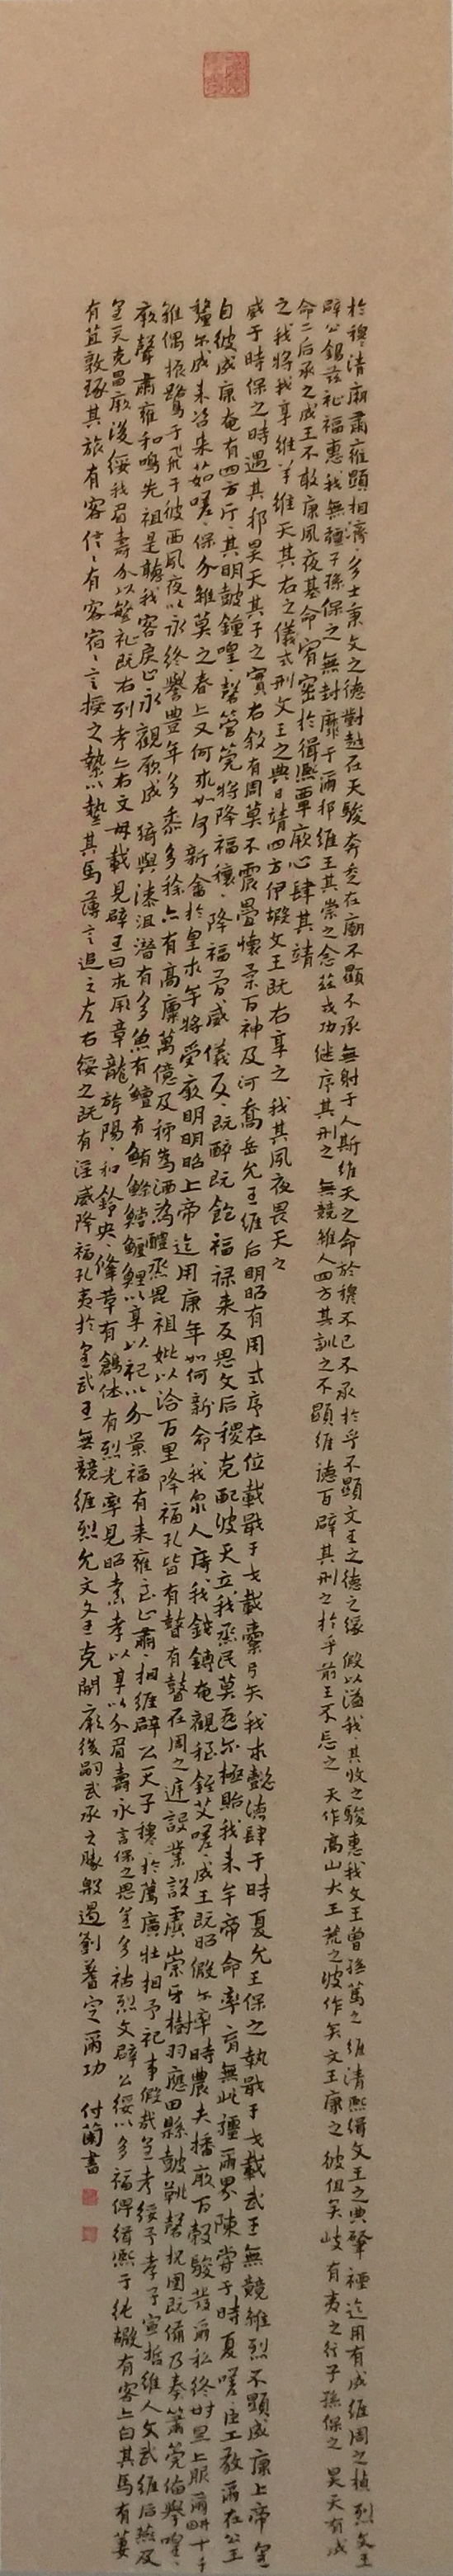 於穆清廟肅雍顯相濟〻多士秉文之德對越在天駿奔走在廟不顯不承無射于人斯維天之命於穆不已不承於乎不顯文王之德之緣 假以溢我其收之駿惠我文王曾孫篤之 維清熙緝文王之典肇禋迄用有成維周之楨 烈文王
辟公錫茲祉福惠我無疆子孫保之無封靡于爾邦維王其崇之念茲戎功继序其刑之 無競維人四方其訓之不顯維德百辟其刑之於乎前王不忘之 天作高山大王荒之彼作矣文王康之彼徂矣岐有夷之行子孫保之 昊天有成
命二后承之成王不敢康夙夜基命宥密於緝熙單厥心肆其靖
之我將我享維羊維天其右之儀式刑文王之典日靖四方伊嘏文王既右享之 我其夙夜畏天之
威于時保之時邁其邦昊天其子之實右敘有周莫不震疊懷柔百神及河喬岳允王維后明昭有周式序在位載戢干戈載櫜弓矢我求懿德肆于時夏允王保之執戢干戈載武王無競維烈不顯成康上帝是
自彼成康奄有四方斤〻其明鼓鍾喤〻磬管筦將降福穰〻降福簡威儀反〻既醉既飽福禄来反思文后稷克配彼天立我烝民莫匪尔極貽我来牟帝命率育無此疆爾界陳常于時夏嗟〻臣工敬爾在公王
釐尔成来咨来茹嗟〻保介維莫之春上又何求如何新畬於皇来牟將受厥明明昭上帝迄用康年如何新命我眾人庤我錢鎛奄觀銍艾嗟〻成王既昭假尔率時農夫播厥百穀駿發爾私終卅里上服爾耕十千
維偶振鷺于飛于彼西夙夜以永終譽豐年多黍多稌亦有高廩萬億及秭為酒為醴烝畀祖妣以洽百里降福孔皆有瞽有瞽在周之庭設業設虡崇牙樹羽應田縣鼓鞉磬柷圉既備乃奏簫筦備舉喤〻
厥聲肅雍和鳴先祖是聽我客戾止永觀厥成 猗與漆沮潜有多魚有鱣有鮪鰷鱨鰋鯉以享以祀以介景福有来雍〻至止肅〻相維辟公天子穆〻於薦廣牡相予祀事假哉皇考綏予孝子宣哲維人文武維后燕及
皇天克昌厥後綏我眉壽介以繁祉既右列考亦右文母載見辟王曰求厥章龍旂陽〻和鈴央〻鞗革有鶬休有烈光率見昭孝以享以介眉壽永言保之思皇多祜烈文辟公綏以多福俾緝熙于纯嘏有客上白其馬有萋
有苴敦琢其旅有客信〻有客宿〻言授之縶以縶其馬薄言追之左右綏之既有淫威降福孔夷於皇武王無競維烈允文文王克開厥後嗣武承之勝殷遏劉蓍定爾功 付蘭書